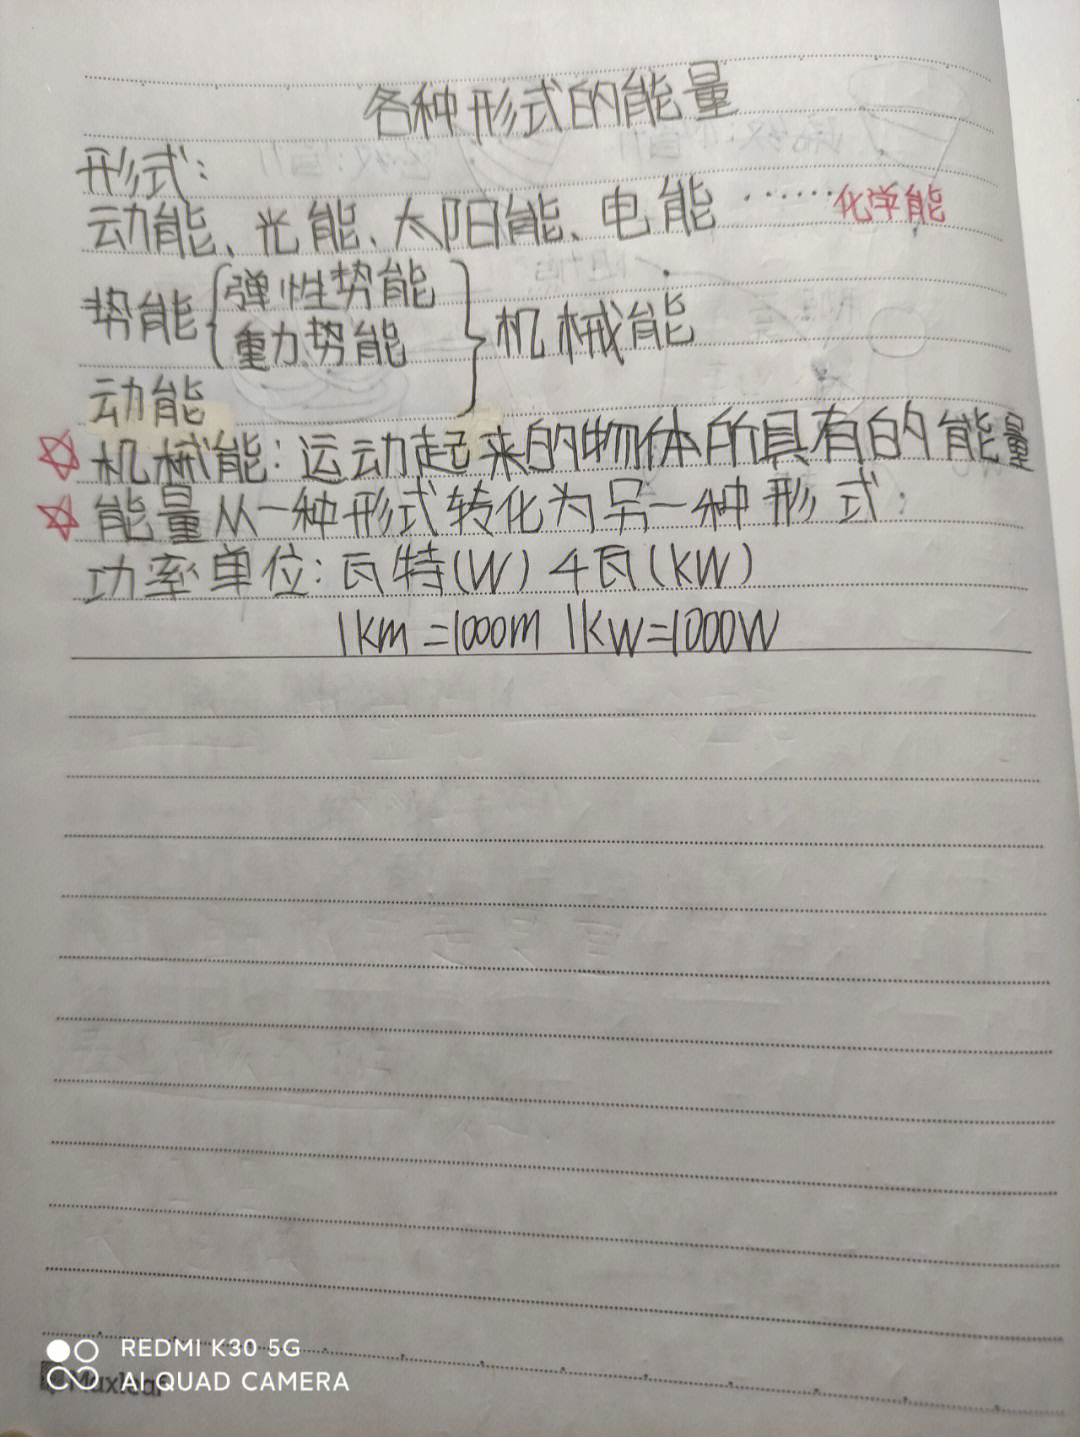 各种形式的能量
形式:
动能、光能、太阳能、电能……化学能
势能{弹性势能
重力势能}机械能
动能
☆机械能:运动起来的物体所具有的能量
☆能量从一种形式转化为另一种形式.
功率单位:瓦特(W) 千瓦(kW)
1km=1000m 1kW=1000W
REDMI K30 5G
AI QUAD CAMERA
Maxleaf